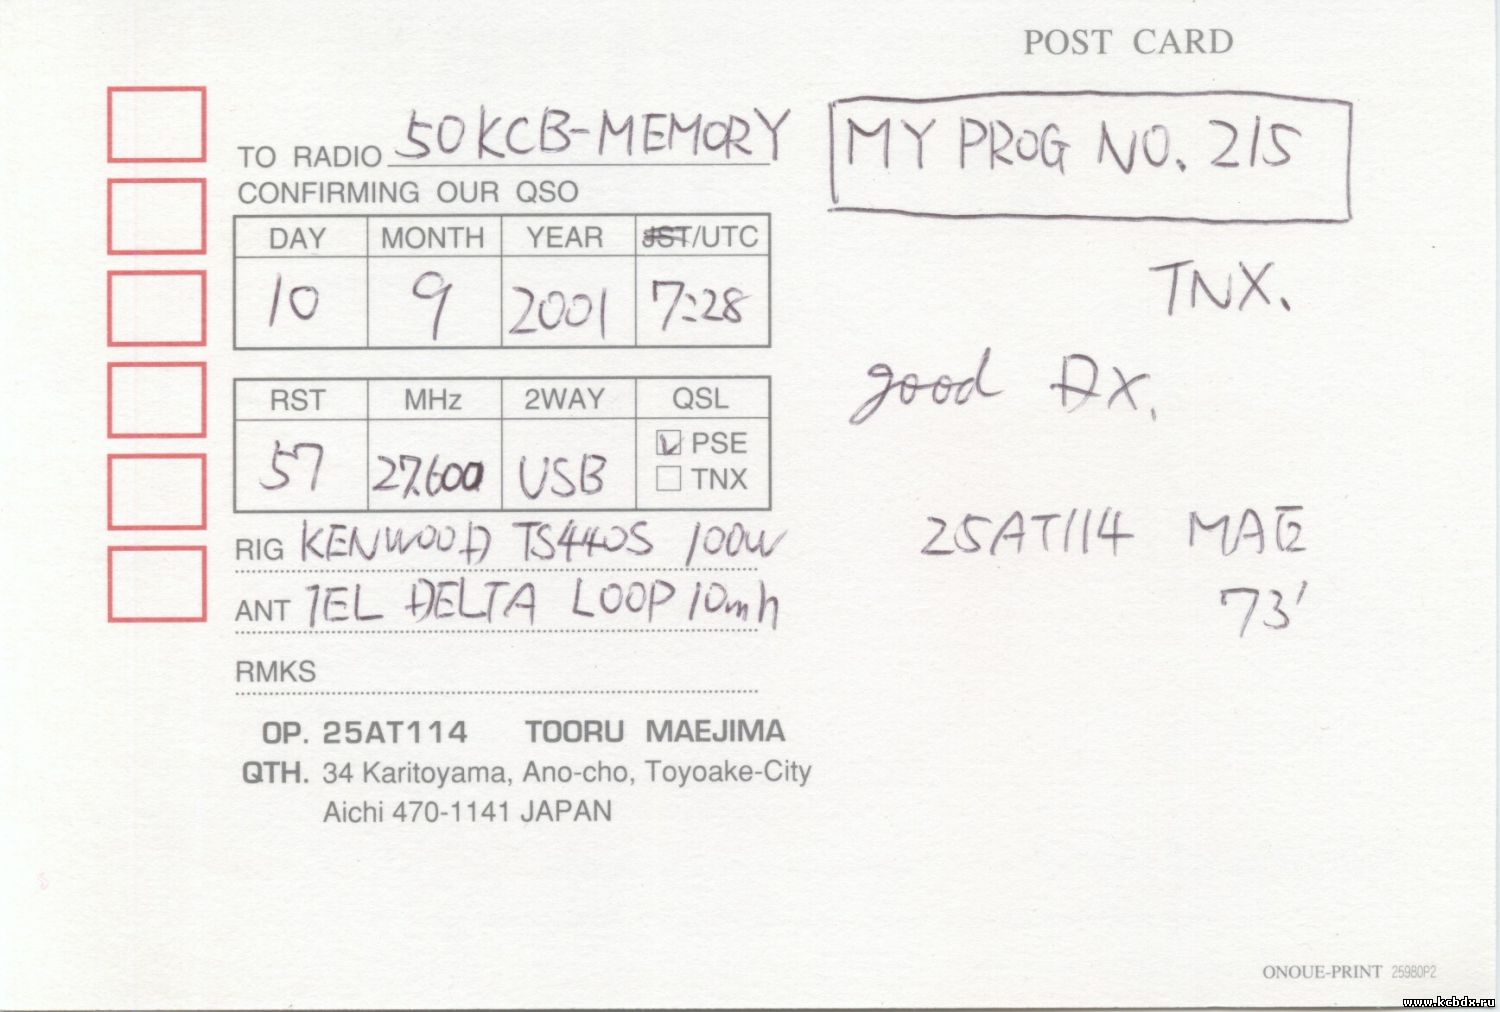 POST CARD
TO RADIO 50KCB-MEMORY
MY PROG NO. 215
CONFIRMING OUR QSO
DAY MONTH YEAR JST/UTC
10 9 2001 7:28
TNX.
good DX.
RST MHz 2WAY QSL
57 27.600 USB PSE
TNX
RIG KENWOOD TS440S 100W
25AT114 MAE
73'
ANT 1EL DELTA LOOP 10mh
RMKS
OP. 25AT114 TOORU MAEJIMA
QTH. 34 Karitoyama, Ano-cho, Toyoake-City
Aichi 470-1141 JAPAN
ONOUE-PRINT 25980P2
www.kcbdx.ru